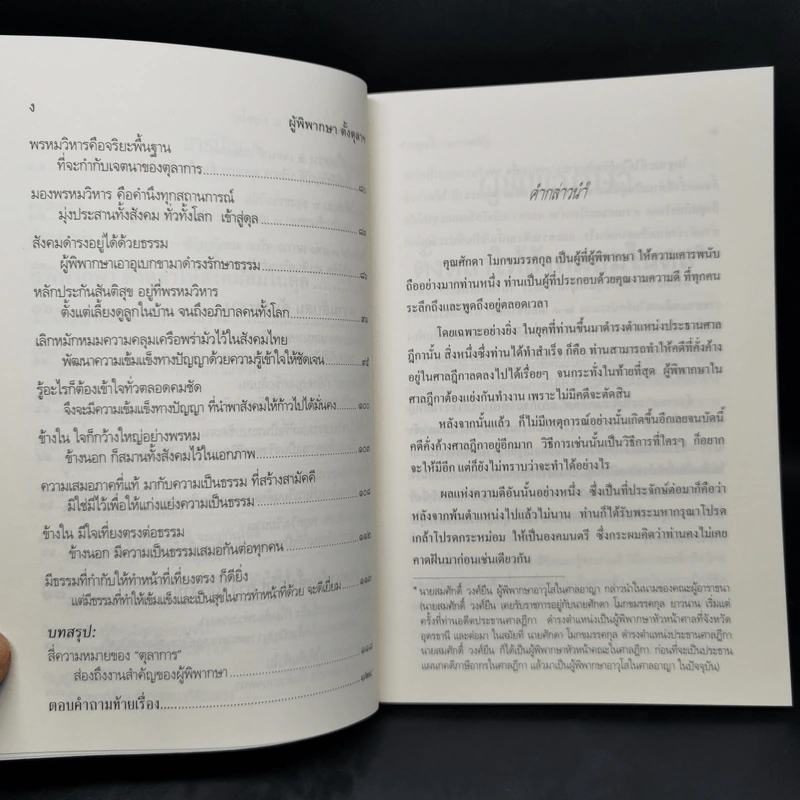 ง
ผู้พิพากษา ตั้งตุลาฯ
พรหมวิหารคือจริยะพื้นฐาน
ที่จะกำกับเจตนาของตุลาการ
มองพรหมวิหาร คือคำนึงทุกสถานการณ์
มุ่งประสานทั้งสังคม ทั่วทั้งโลก เข้าสู่ดุล
สังคมดำรงอยู่ได้ด้วยธรรม
ผู้พิพากษาเอาอุเบกขามาดำรงรักษาธรรม
หลักประกันสันติสุข อยู่ที่พรหมวิหาร
ตั้งแต่เลี้ยงดูลูกในบ้าน จนถึงอภิบาลคนทั้งโลก
เลิกหมักหมมความคลุมเครือพร่ามัวไว้ในสังคมไทย
พัฒนาความเข้มแข็งทางปัญญาด้วยความรู้เข้าใจให้ชัดเจน
รู้อะไรก็ต้องเข้าใจทั่วตลอดคมชัด
จึงจะมีความเข้มแข็งทางปัญญา ที่นำพาสังคมให้ก้าวไปได้มั่นคง.......๑๐๐
ข้างใน ใจก็กว้างใหญ่อย่างพรหม
ข้างนอก ก็สมานทั้งสังคมไว้ในเอกภาพ.......๑๐๓
ความเสมอภาคที่แท้ มากับความเป็นธรรม ที่สร้างสามัคคี
มิใช่มีไว้เพื่อให้แก่งแย่งความเป็นธรรม.......๑๐๘
ข้างใน มีใจเที่ยงตรงต่อธรรม
ข้างนอก มีความเป็นธรรมเสมอกันต่อทุกคน.......๑๑๒
มีธรรมที่กำกับให้ทำหน้าที่เที่ยงตรง ก็ดียิ่ง
แต่มีธรรมที่ทำให้เข้มแข็งและเป็นสุขในการทำหน้าที่ด้วย จะดีเยี่ยม
บทสรุป:
สี่ความหมายของ “ตุลาการ”
ส่องถึงงานสำคัญของผู้พิพากษา
ตอบคำถามท้ายเรื่อง
คำกล่าวนำ*
คุณศักดา โมกขมรรคกุล เป็นผู้ที่ผู้พิพากษา ให้ความเคารพนับ
ถืออย่างมากท่านหนึ่ง ท่านเป็นผู้ที่ประกอบด้วยคุณงามความดี ที่ทุกคน
ระลึกถึงและพูดถึงอยู่ตลอดเวลา
โดยเฉพาะอย่างยิ่ง ในยุคที่ท่านขึ้นมาดำรงตำแหน่งประธานศาล
ฎีกานั้น สิ่งหนึ่งซึ่งท่านได้ทำสำเร็จ ก็คือ ท่านสามารถทำให้คดีที่คั่งค้าง
อยู่ในศาลฎีกาลดลงไปได้เรื่อยๆ จนกระทั่งในท้ายที่สุด ผู้พิพากษาใน
ศาลฎีกาต้องแย่งกันทำงาน เพราะไม่มีคดีจะตัดสิน
หลังจากนั้นแล้ว ก็ไม่มีเหตุการณ์อย่างนั้นเกิดขึ้นอีกเลยจนบัดนี้
คดีคั่งค้างศาลฎีกาอยู่อีกมาก วิธีการเช่นนั้นเป็นวิธีการที่ใครๆ ก็อยาก
จะให้มีอีก แต่ก็ยังไม่ทราบว่าจะทำได้อย่างไร
ผลแห่งความดีอันนั้นอย่างหนึ่ง ซึ่งเป็นที่ประจักษ์ต่อมาก็คือว่า
หลังจากพ้นตำแหน่งไปแล้วไม่นาน ท่านก็ได้รับพระมหากรุณาโปรด
เกล้าโปรดกระหม่อม ให้เป็นองคมนตรี ซึ่งกระผมคิดว่าท่านคงไม่เคย
คาดฝันมาก่อนเช่นเดียวกัน
* นายสมศักดิ์ วงศ์ยืน ผู้พิพากษาอาวุโสในศาลอาญา กล่าวนำในนามของคณะผู้อาราธนา
(นายสมศักดิ์ วงศ์ยืน เคยรับราชการอยู่กับนายศักดา โมกขมรรคกุล ยาวนาน เริ่มแต่
ครั้งที่ท่านอดีตประธานศาลฎีกา ดำรงตำแหน่งเป็นผู้พิพากษาหัวหน้าศาลที่จังหวัด
อุดรธานี และต่อมา ในสมัยที่ นายศักดา โมกขมรรคกุล ดำรงตำแหน่งประธานศาลฎีกา
นายสมศักดิ์ วงศ์ยืน ก็ได้เป็นผู้พิพากษาหัวหน้าคณะในศาลฎีกา ก่อนที่จะเป็นประธาน
แผนกคดีภาษีอากรในศาลฎีกา แล้วมาเป็นผู้พิพากษาอาวุโสในศาลอาญา ในปัจจุบัน)